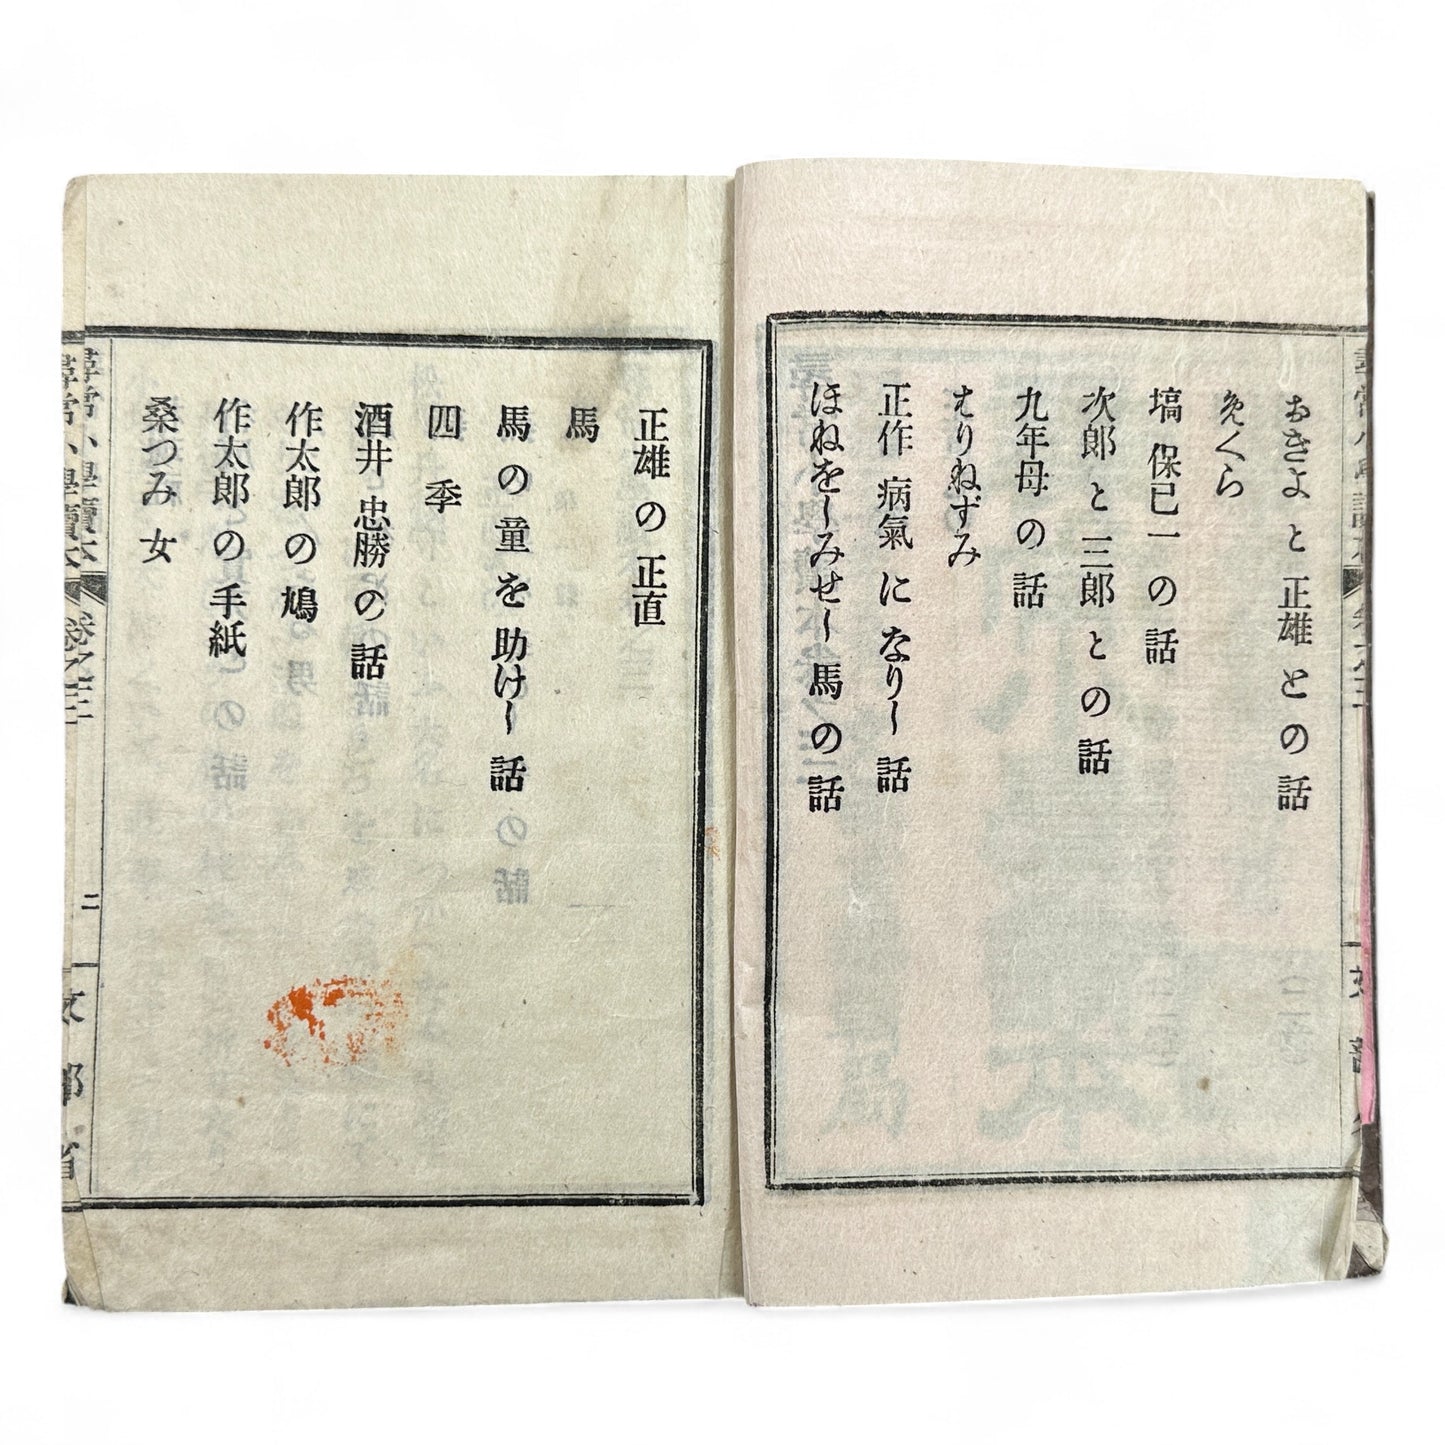 おきよ と 正雄 との 話
めくら
塙 保己一 の 話
次郎 と 三郎 との 話
九年母 の 話
はりねずみ
正作 病氣 に なりし 話
ほねをしみせし 馬 の 話
正雄 の 正直
馬
馬 の 童 を 助けし 話
四 季
酒井 忠勝 の 話
作太郎 の 鳩
作太郎 の 手紙
桑つみ 女
尋常小學讀本 卷之三 二 文部省